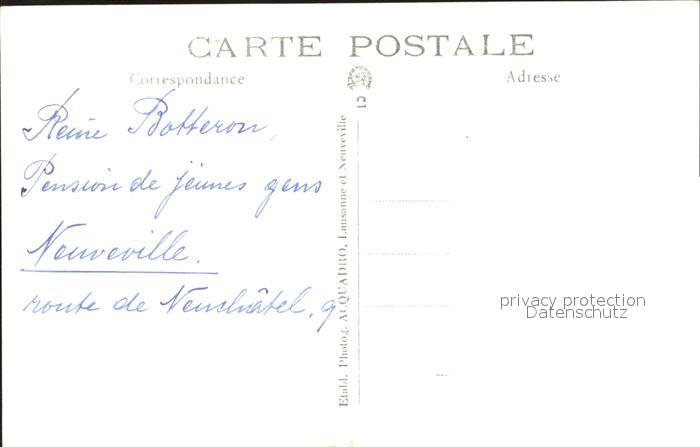 CARTE POSTALE
Correspondance
Adresse
Reine Botteron,
Pension de jeunes gens
Neuveville.
route de Neuchâtel. 9
Etabl. Photog. ACQUADRO, Lausanne et Neuveville
privacy protection
Datenschutz